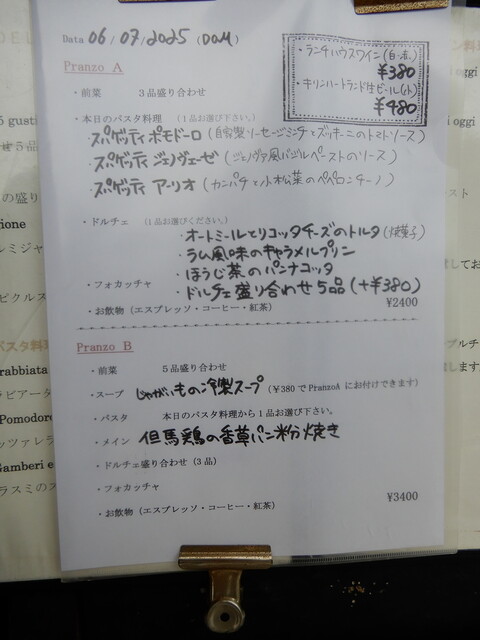 Data 06/07/2025 (DOM)
・ランチハウスワイン(白・赤)
¥380
・キリンハートランド生ビール(小)
¥480
Pranzo A
・前菜 3品盛り合わせ
・本日のパスタ料理 (1品お選び下さい。)
・スパゲッティ ポモドーロ (自家製ソーセージミンチとズッキーニのトマトソース)
・スパゲッティ ジェノヴェーゼ (ジェノヴァ風バジルペーストのソース)
・スパゲッティ アーリオ (カンパチと小松菜のペペロンチーノ)
・ドルチェ (1品お選びください。)
・オートミールとリコッタチーズのトルタ(焼菓子)
・ラム風味のキャラメルプリン
・ほうじ茶のパンナコッタ
・ドルチェ盛り合わせ5品(+¥380)
・フォカッチャ
・お飲物(エスプレッソ・コーヒー・紅茶)
¥2400
Pranzo B
・前菜 5品盛り合わせ
・スープ じゃがいもの冷製スープ (¥380でPranzoAにお付けできます)
・パスタ 本日のパスタ料理から1品お選び下さい。
・メイン 但馬鶏の香草パン粉焼き
・ドルチェ盛り合わせ(3品)
・フォカッチャ
・お飲物(エスプレッソ・コーヒー・紅茶)
¥3400